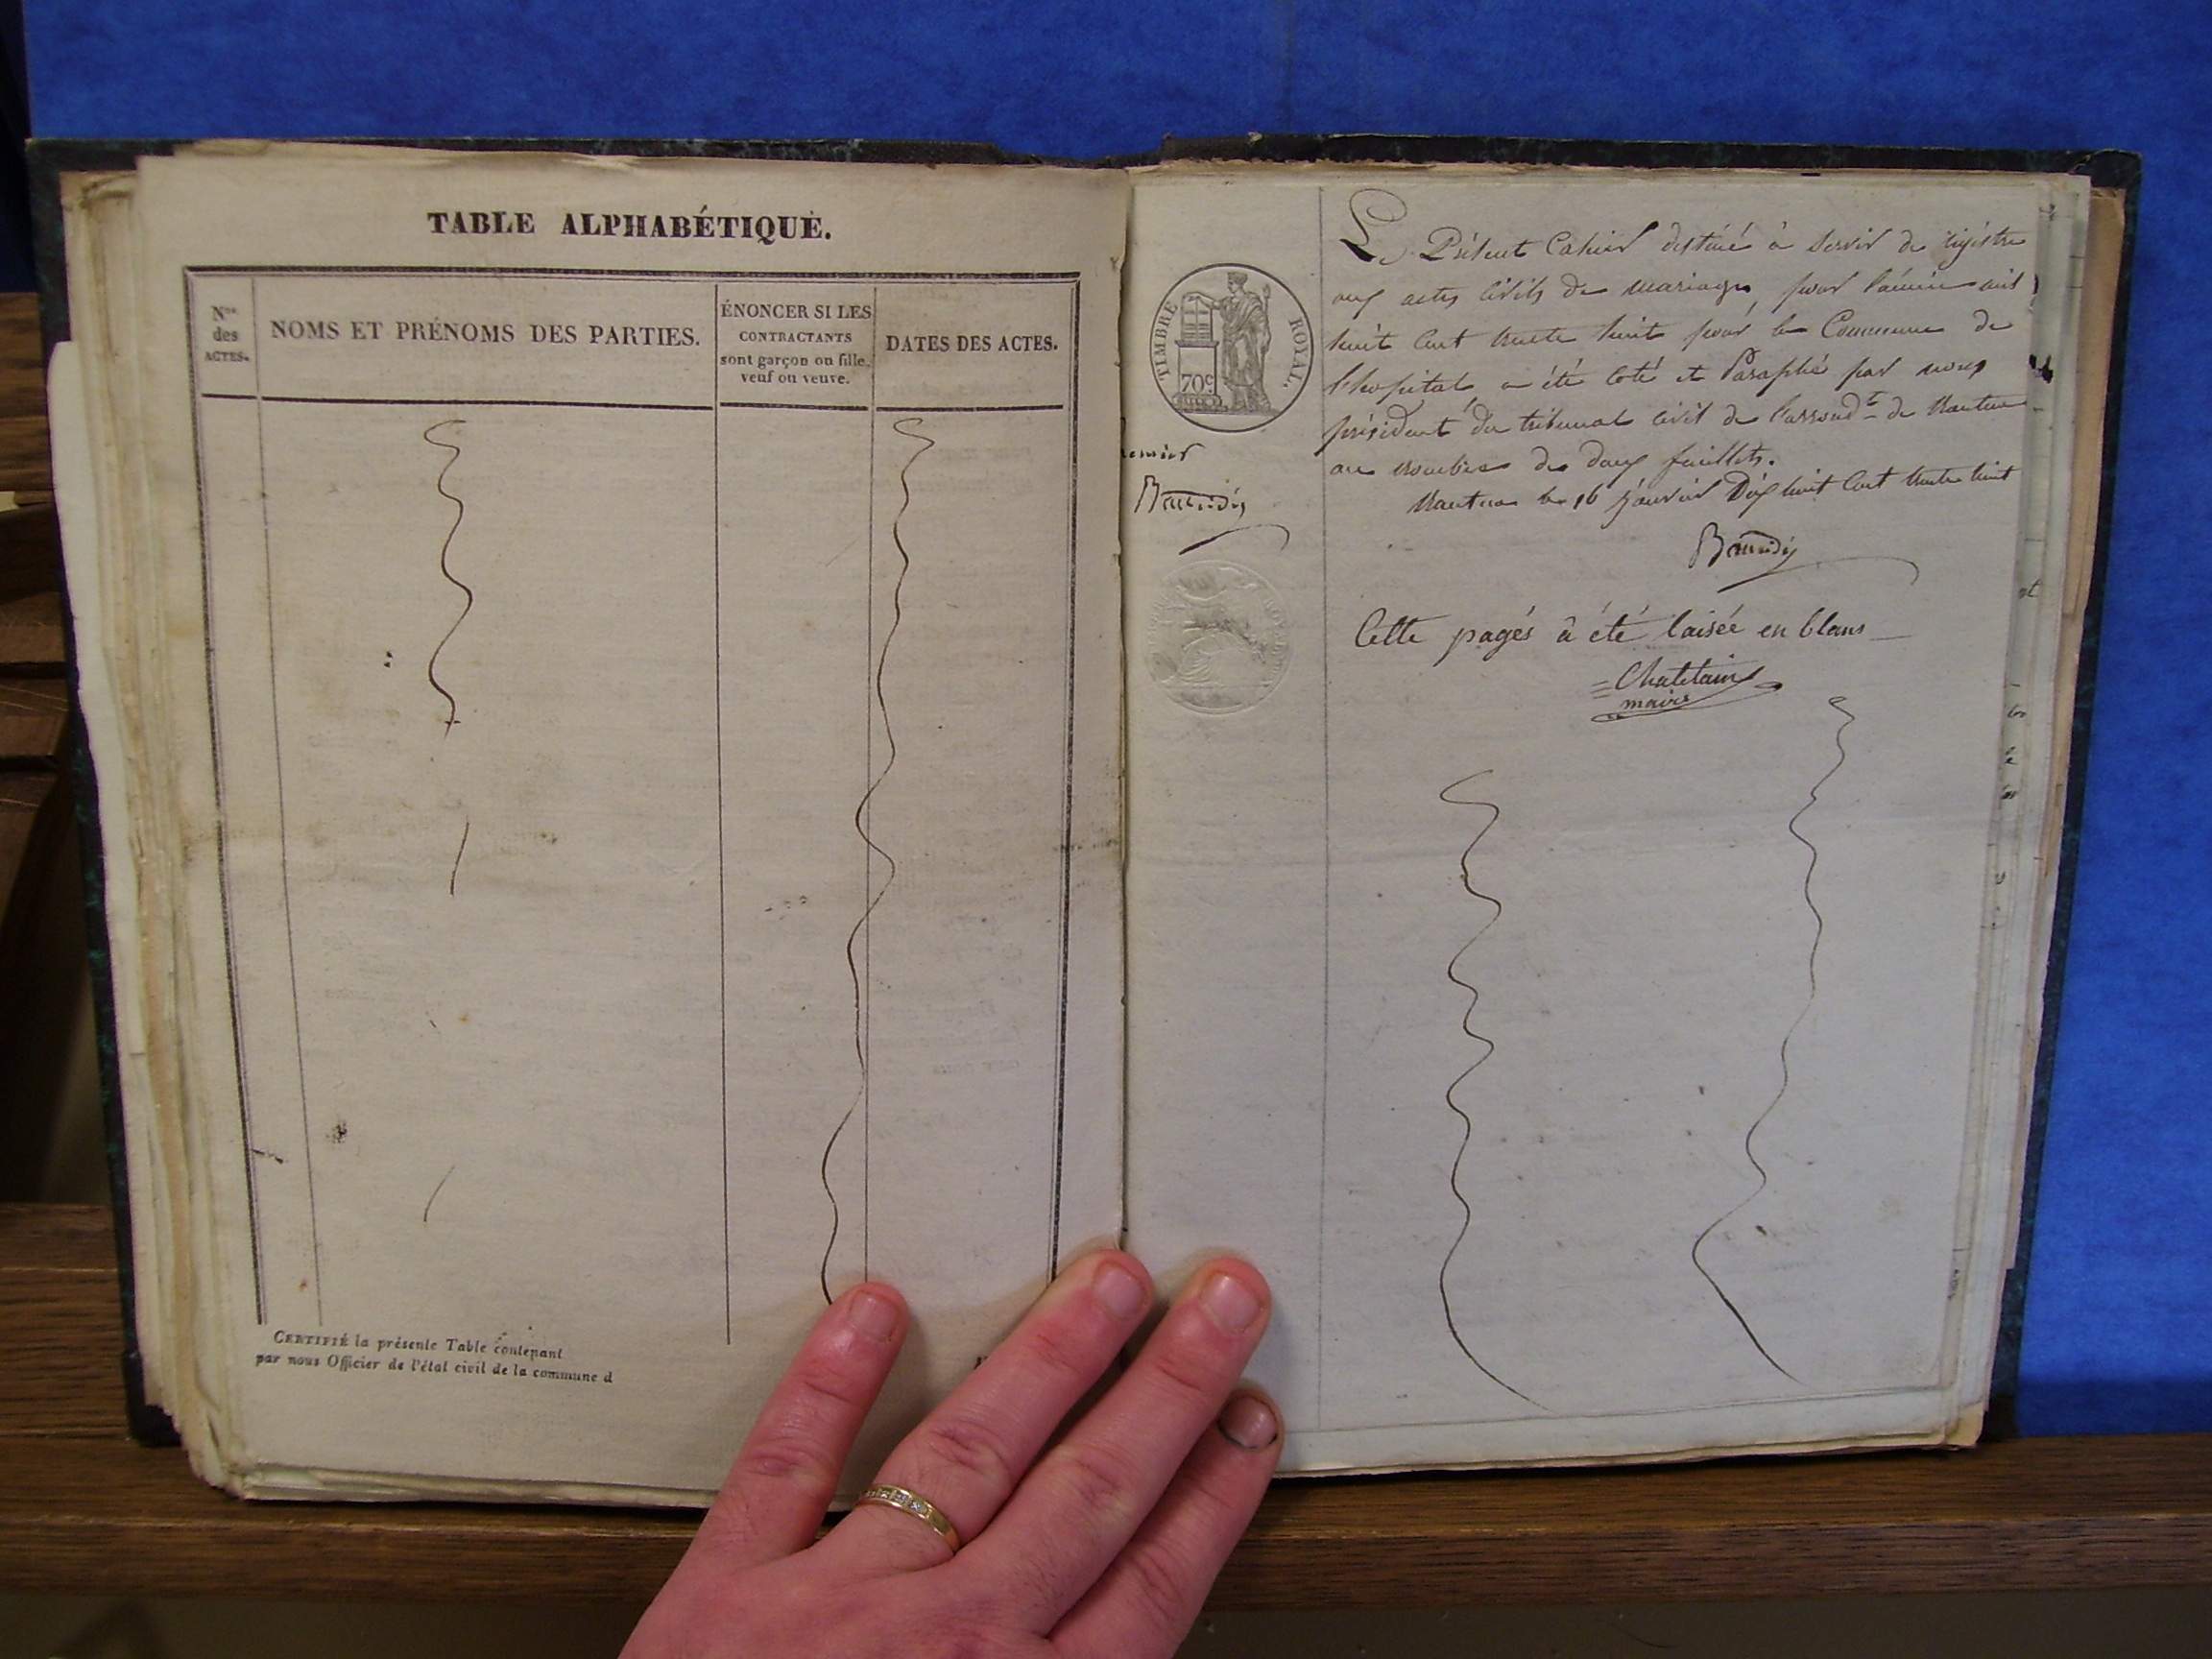 TABLE ALPHABÉTIQUE.
Nos
des
ACTES.
NOMS ET PRÉNOMS DES PARTIES.
ÉNONCER SI LES
CONTRACTANTS
sont garçon ou fille,
veuf ou veuve.
DATES DES ACTES.
CERTIFIÉ la présente Table contenant
par nous Officier de l'état civil de la commune d
TIMBRE ROYAL.
70c
Le Présent Cahier destiné à servir de registre
aux actes civils de mariages, pour l'année mil
huit cent trente huit pour la Commune de
l'hopital a été coté et Paraphé par nous
président du tribunal civil de l'arrondt de Nantua
au nombre de deux feuillets.
Nantua le 16 janvier Dix huit cent trente huit
Cette pagés à été laisée en blans
Chatelain
maire